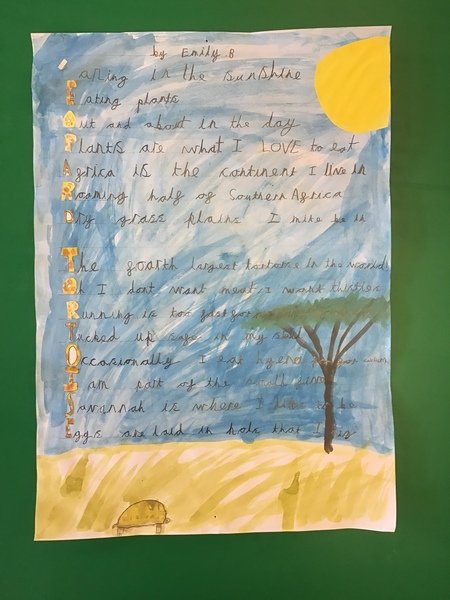 by Emily B
Lazing in the sunshine
Eating plants
Out and about in the day
Plants are what I LOVE to eat
Africa is the continent I live in
Roaming half of Southern Africa
Dry grass plains I mite be in
The foarth largest tortoise in the world
Oh I dont want meat I want thistles
Running is too fast for
Tucked up safe in my shell
Occasionally I eat hyena
I am part of the small five
Savannah is where I like to be
Eggs are laid in hole that I dig